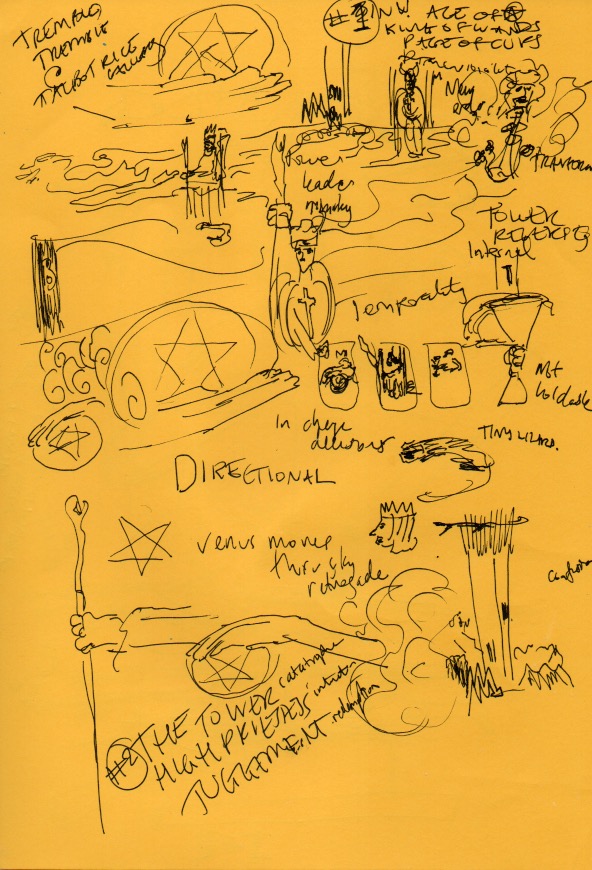 TREMBLO
TREMBLE
TALBOT RICE
GALLERY
#1
NW. ACE OF
KING OF WANDS
PAGE OF CUPS
Tower
leader
TRANSFORM
TOWER
REVERSED
Internal
Temporality
Not
In charge
TINY LIZARD.
DIRECTIONAL
Venus moves
thru sky
retrograde
#2 THE TOWER catastrophe
HIGH PRIESTESS intuition
JUDGEMENT redemption